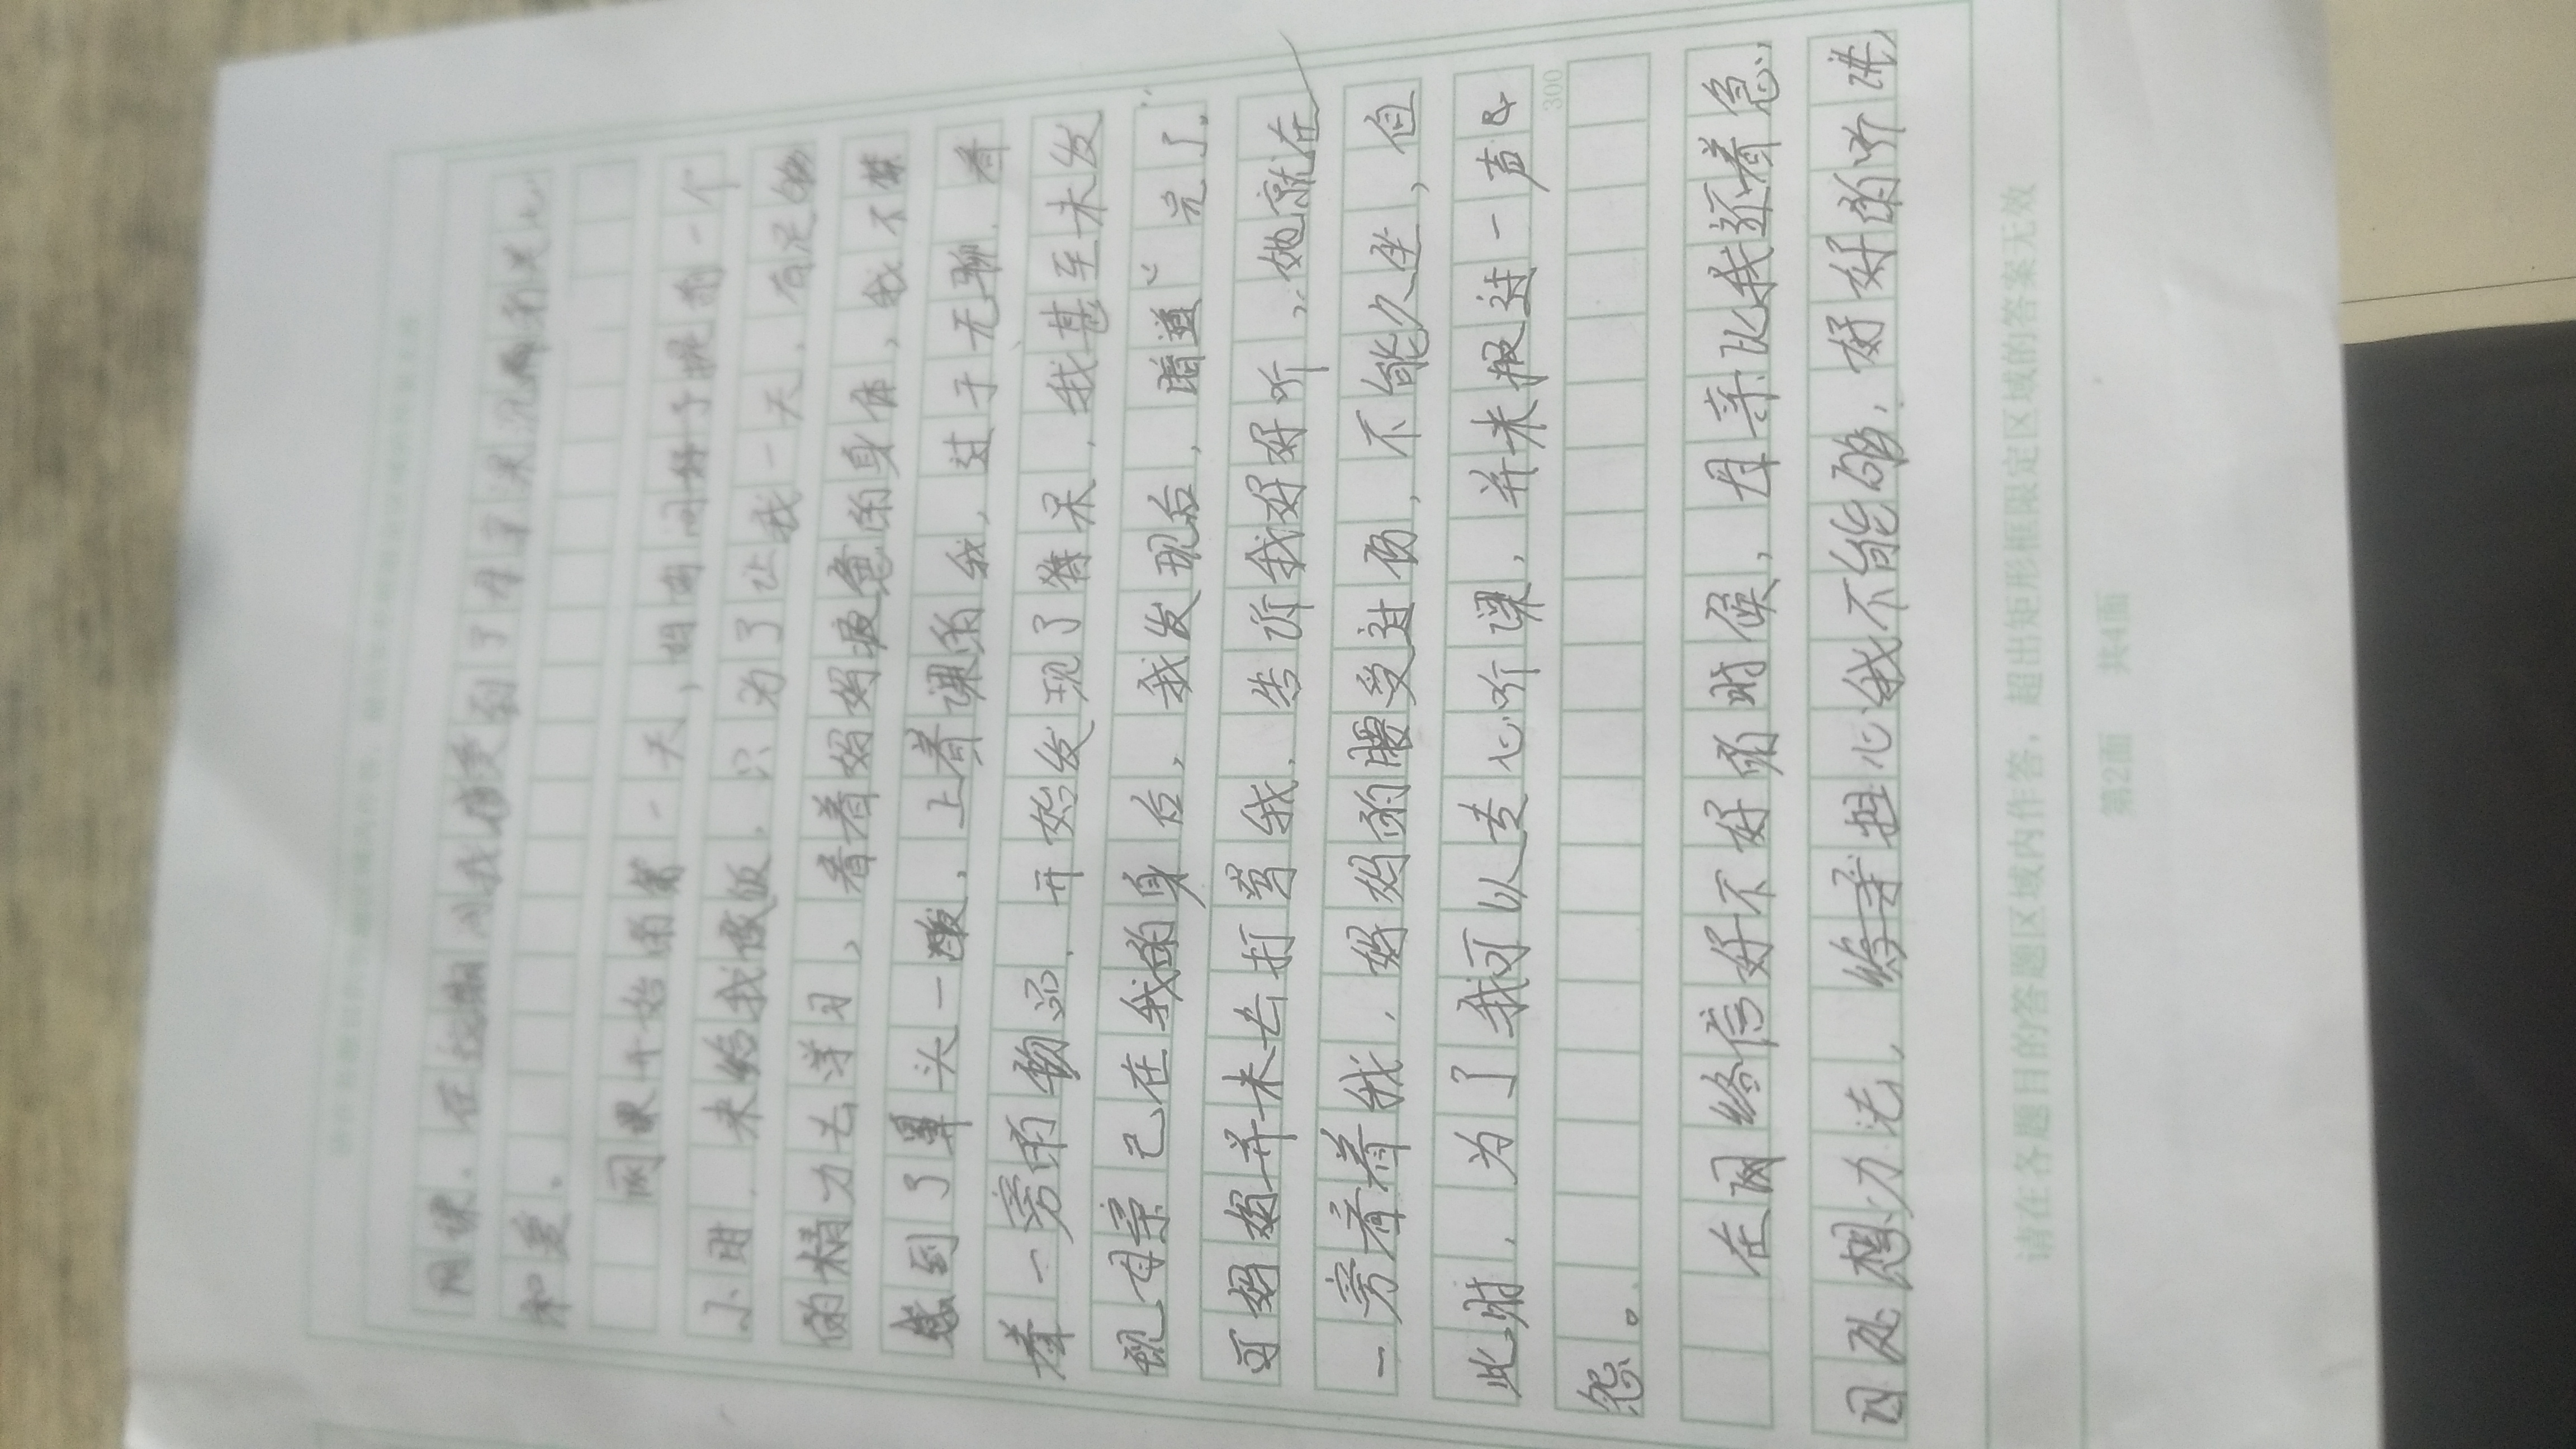 网课，在短期内我感受到了母亲
和爱。
网课开始的第一天，妈妈提前一个
小时，来给我做饭，只为了让我一天，有足够
的精力去学习，看着妈妈疲惫的身体，我不禁
感到了鼻头一酸，上着课的我，过于无聊，看
着一旁的物品，开始发现了发呆，我甚至未发
现母亲已在我的身后，我发现后，暗道“完了。”
可妈妈并未去打骂我，告诉我好好听，她就在
一旁看着我，妈妈的腰受过伤，不能久坐，但
此时，为了我可以专心听课，并未报过一声
怨。
在网络信好不好的时候，母亲比我还着急，
四处想办法，担心我不能够，好好的听讲，
300
请在各题目的答题区域内作答，超出矩形框限定区域的答案无效
第2面 共4面